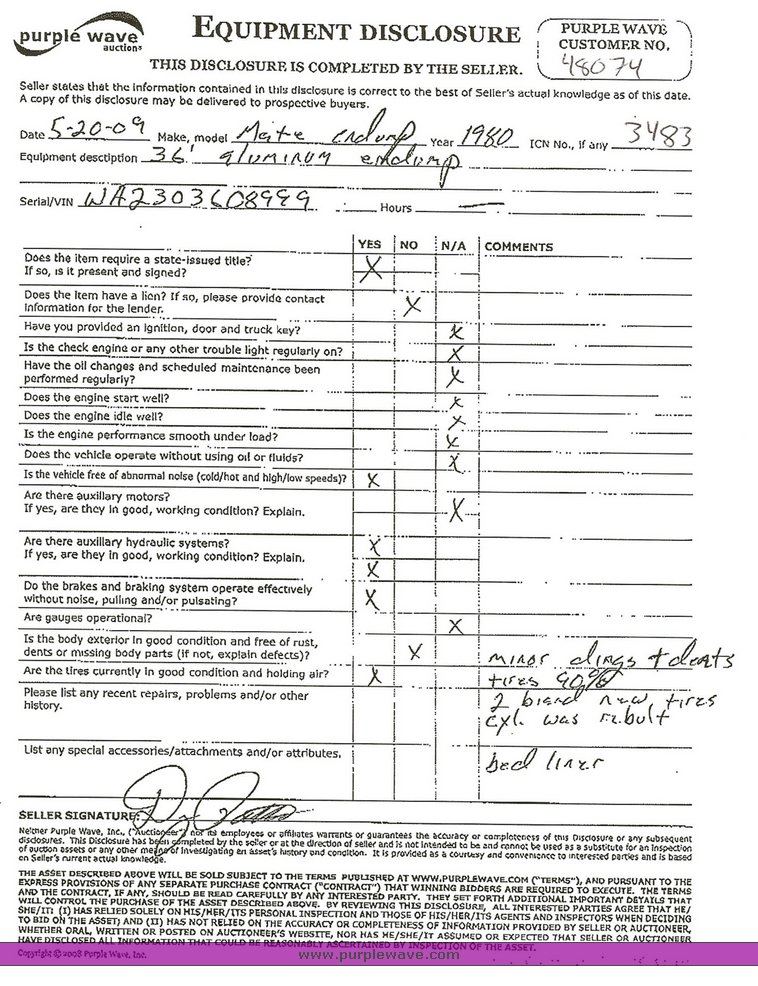 purple wave
auctions
EQUIPMENT DISCLOSURE
PURPLE WAVE
CUSTOMER NO.
48074
THIS DISCLOSURE IS COMPLETED BY THE SELLER.
Seller states that the information contained in this disclosure is correct to the best of Seller's actual knowledge as of this date.
A copy of this disclosure may be delivered to prospective buyers.
Date 5-20-09 Make, model endump Year 1980 ICN No., if any 3483
Equipment description 36' aluminum endump
Serial/VIN WA2303608999 Hours —
YES NO N/A COMMENTS
Does the item require a state-issued title? X
If so, is it present and signed?
Does the item have a lien? If so, please provide contact
information for the lender. X
Have you provided an ignition, door and truck key? X
Is the check engine or any other trouble light regularly on? X
Have the oil changes and scheduled maintenance been
performed regularly? X
Does the engine start well? X
Does the engine idle well? X
Is the engine performance smooth under load? X
Does the vehicle operate without using oil or fluids? X
Is the vehicle free of abnormal noise (cold/hot and high/low speeds)? X
Are there auxiliary motors?
If yes, are they in good, working condition? Explain. X
Are there auxiliary hydraulic systems? X
If yes, are they in good, working condition? Explain. X
Do the brakes and braking system operate effectively
without noise, pulling and/or pulsating? X
Are gauges operational? X
Is the body exterior in good condition and free of rust,
dents or missing body parts (if not, explain defects)? X minor dings + dents
Are the tires currently in good condition and holding air? X tires 90%
Please list any recent repairs, problems and/or other 2 brand new tires
history. axl was rebult
List any special accessories/attachments and/or attributes. bed liner
SELLER SIGNATURE:
Neither Purple Wave, Inc., ("Auctioneer") nor its employees or affiliates warrants or guarantees the accuracy or completeness of this Disclosure or any subsequent
disclosures. This Disclosure has been completed by the seller or at the direction of seller and is not intended to be and cannot be used as a substitute for an inspection
of auction assets or any other means of investigating an asset's history and condition. It is provided as a courtesy and convenience to interested parties and is based
on Seller's current actual knowledge.
THE ASSET DESCRIBED ABOVE WILL BE SOLD SUBJECT TO THE TERMS PUBLISHED AT WWW.PURPLEWAVE.COM ("TERMS"), AND PURSUANT TO THE
EXPRESS PROVISIONS OF ANY SEPARATE PURCHASE CONTRACT ("CONTRACT") THAT WINNING BIDDERS ARE REQUIRED TO EXECUTE. THE TERMS
AND THE CONTRACT, IF ANY, SHOULD BE READ CAREFULLY BY ANY INTERESTED PARTY. THEY SET FORTH ADDITIONAL IMPORTANT DETAILS THAT
WILL CONTROL THE PURCHASE OF THE ASSET DESCRIBED ABOVE. BY REVIEWING THIS DISCLOSURE, ALL INTERESTED PARTIES AGREE THAT HE/
SHE/IT: (I) HAS RELIED SOLELY ON HIS/HER/ITS PERSONAL INSPECTION AND THOSE OF HIS/HER/ITS AGENTS AND INSPECTORS WHEN DECIDING
TO BID ON THE ASSET; AND (II) HAS NOT RELIED ON THE ACCURACY OR COMPLETENESS OF INFORMATION PROVIDED BY SELLER OR AUCTIONEER,
WHETHER ORAL, WRITTEN OR POSTED ON AUCTIONEER'S WEBSITE, NOR HAS HE/SHE/IT ASSUMED OR EXPECTED THAT SELLER OR AUCTIONEER
HAVE DISCLOSED ALL INFORMATION THAT COULD BE REASONABLY ASCERTAINED BY INSPECTION OF THE ASSET.
Copyright © 2008 Purple Wave, Inc.
www.purplewave.com